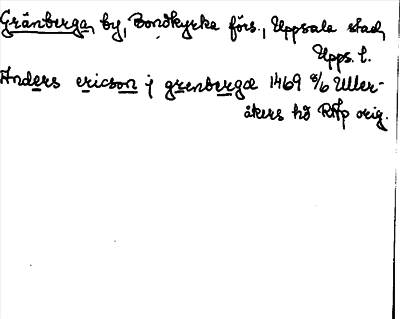 Gränberga, by, Bondkyrka förs., Uppsala stad,
Upps. l.
Anders ericson j grenbergæ 1469 8/6 Uller-
åkers hd RAp orig.